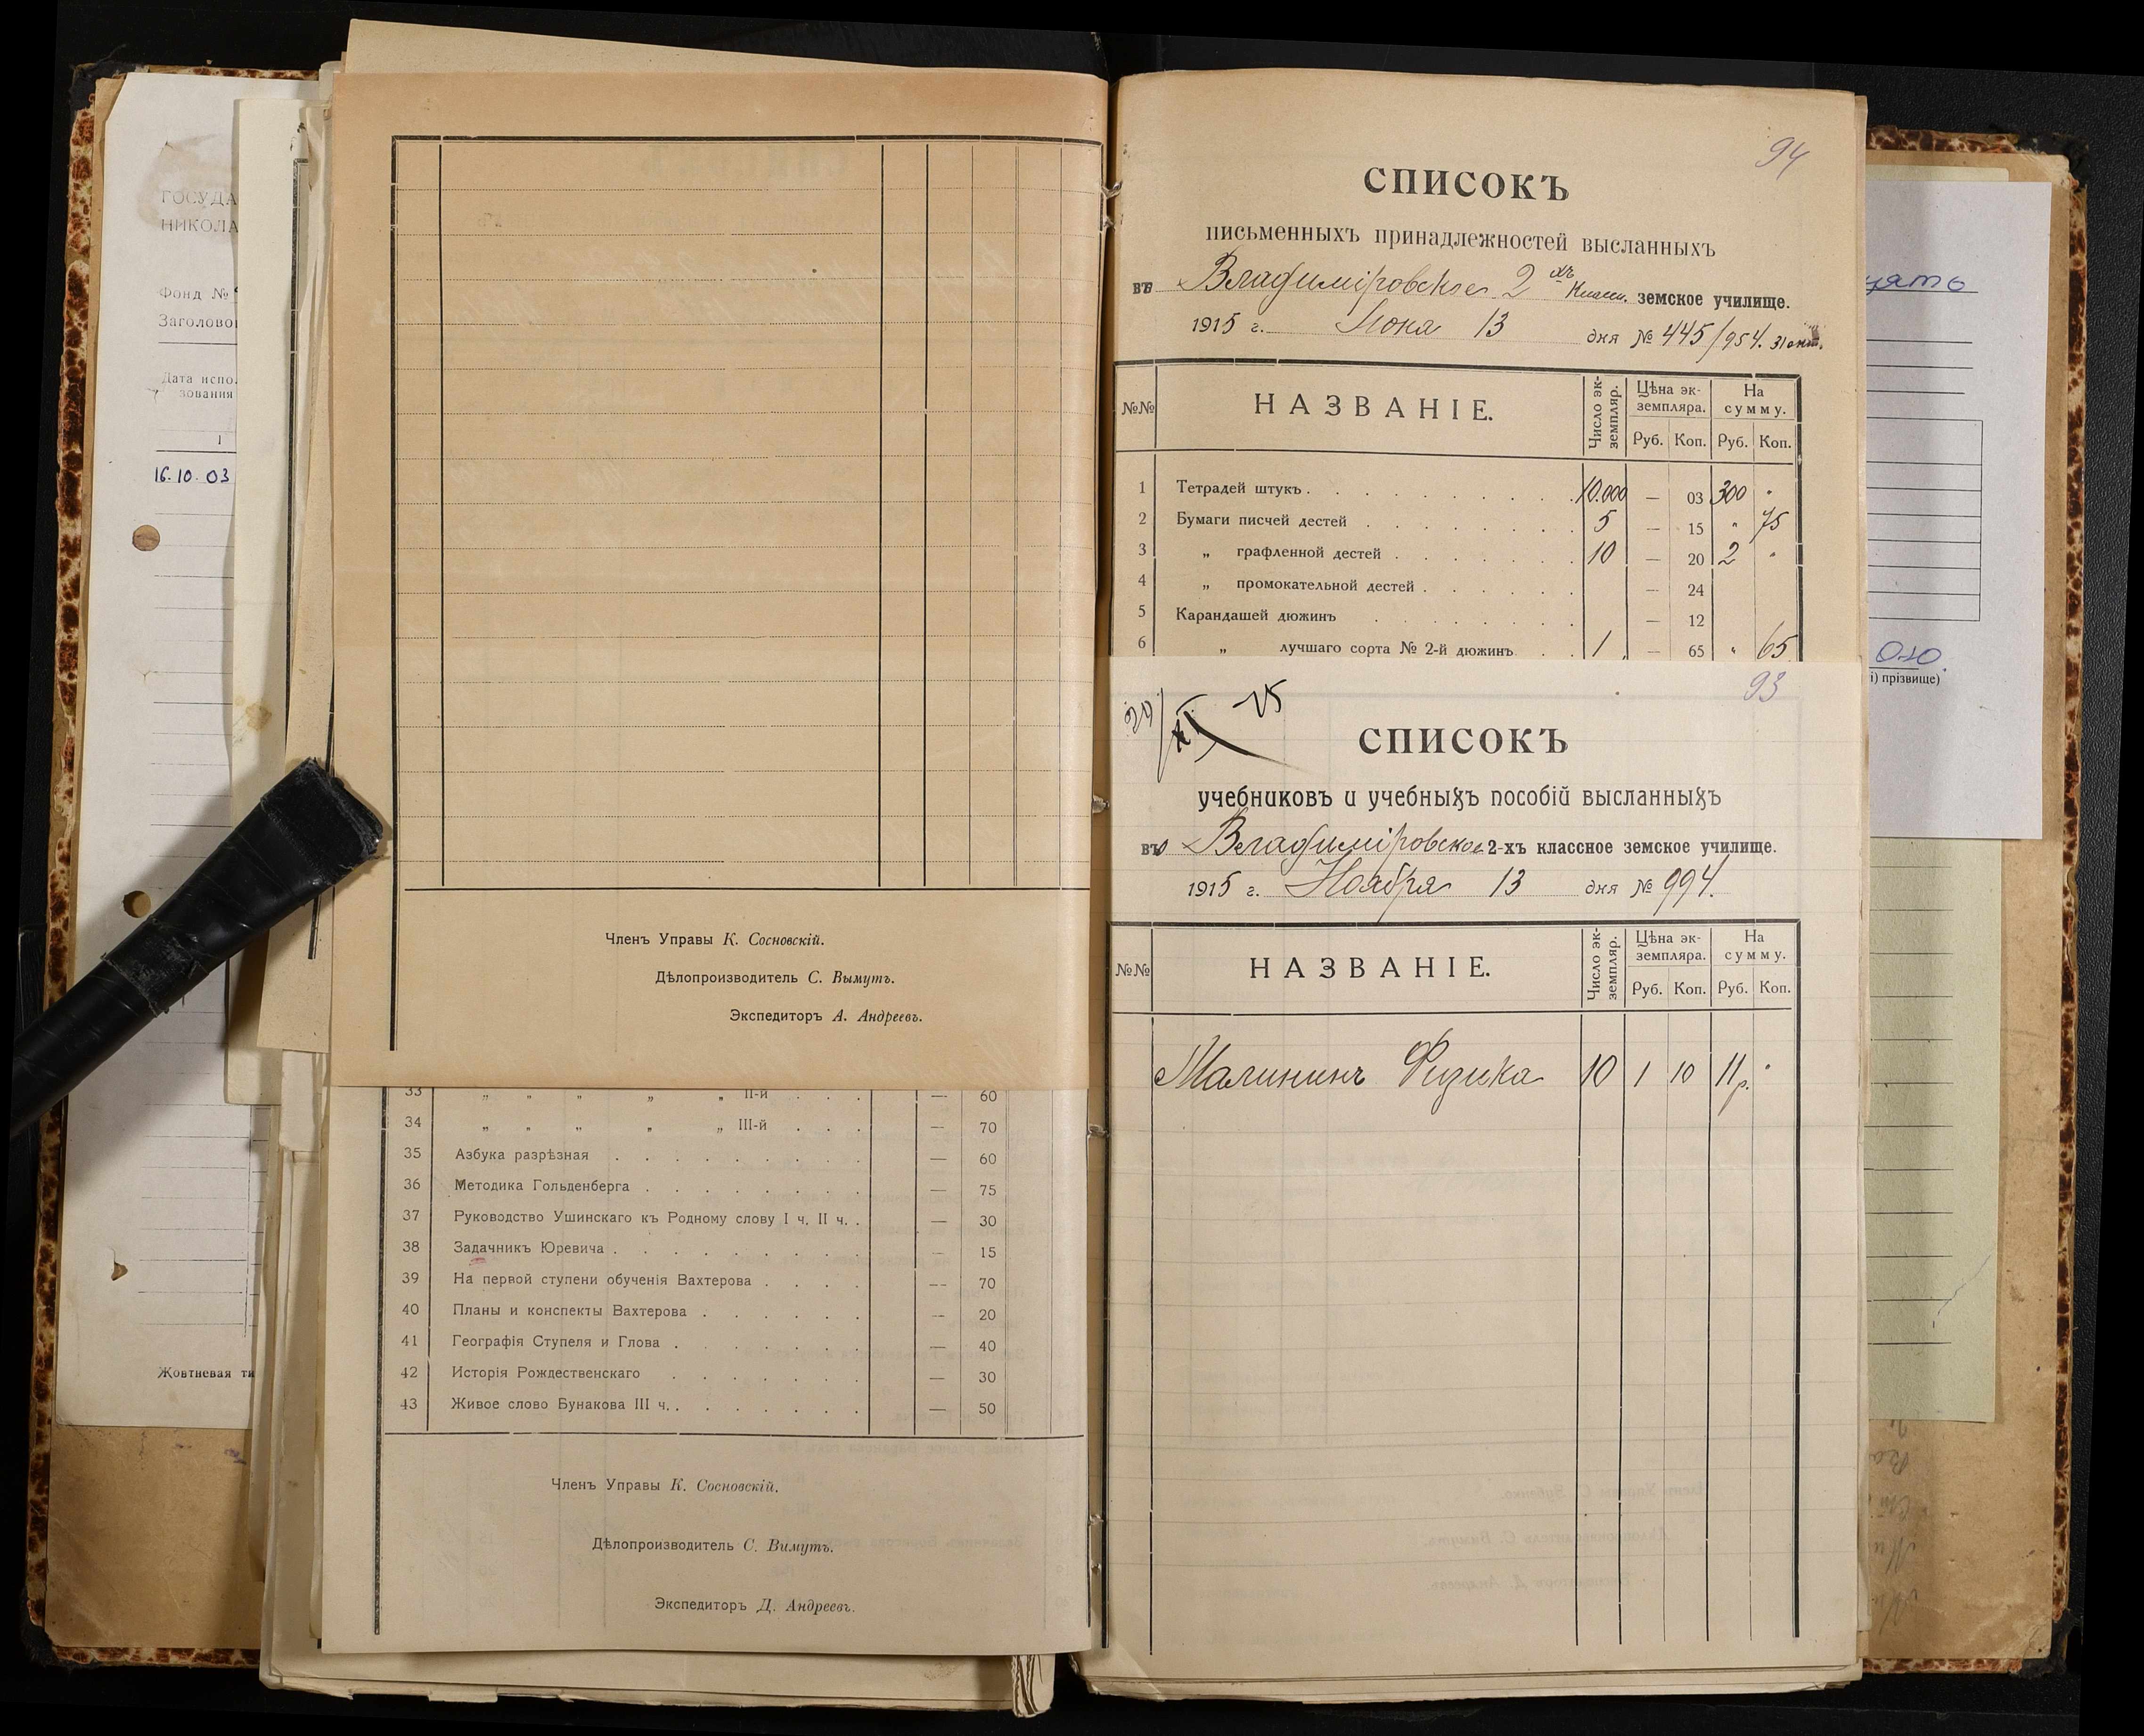 ГОСУДА
НИКОЛА
Фонд №
Заголово
Дата испо
зования
1
16.10.03
Жовтневая ти
Членъ Управы К. Сосновскій.
Дѣлопроизводитель С. Вымутъ.
Экспедиторъ А. Андреевъ.
33 „ „ „ „ „ II-й . . . — 60
34 „ „ „ „ „ III-й . . . — 70
35 Азбука разрѣзная . . . . . . . . — 60
36 Методика Гольденберга . . . . . . . — 75
37 Руководство Ушинскаго къ Родному слову I ч. II ч. . — 30
38 Задачникъ Юревича . . . . . . . . — 15
39 На первой ступени обученія Вахтерова . . . . — 70
40 Планы и конспекты Вахтерова . . . . . . — 20
41 Географія Ступеля и Глова . . . . . . . — 40
42 Исторія Рождественскаго . . . . . . . — 30
43 Живое слово Бунакова III ч. . . . . . . . — 50
Членъ Управы К. Сосновскій.
Дѣлопроизводитель С. Вимутъ.
Экспедиторъ Д. Андреевъ.
94
СПИСОКЪ
письменныхъ принадлежностей высланныхъ
въ Владиміровское 2хъ Класн. земское училище.
1915 г. Іюня 13 дня № 445/954. 31 окт.
№№ НАЗВАНІЕ. Число эк-земпляр. Цѣна эк-земпляра. На сумму.
Руб. Коп. Руб. Коп.
1 Тетрадей штукъ . . . . . . . . . . 10.000 — 03 300 "
2 Бумаги писчей дестей . . . . . . . . 5 — 15 " 75
3 „ графленной дестей . . . . . . . 10 — 20 2 "
4 „ промокательной дестей . . . . . . — 24
5 Карандашей дюжинъ . . . . . . . — 12
6 „ лучшаго сорта № 2-й дюжинъ . . 1 — 65 " 65
93
29/XI 15
СПИСОКЪ
учебниковъ и учебныхъ пособій высланныхъ
въ Владиміровское 2-хъ классное земское училище.
1915 г. Ноября 13 дня № 994.
№№ НАЗВАНІЕ. Число эк-земпляр. Цѣна эк-земпляра. На сумму.
Руб. Коп. Руб. Коп.
Малининъ Физика 10 1 10 11 р. "
і) прізвище)